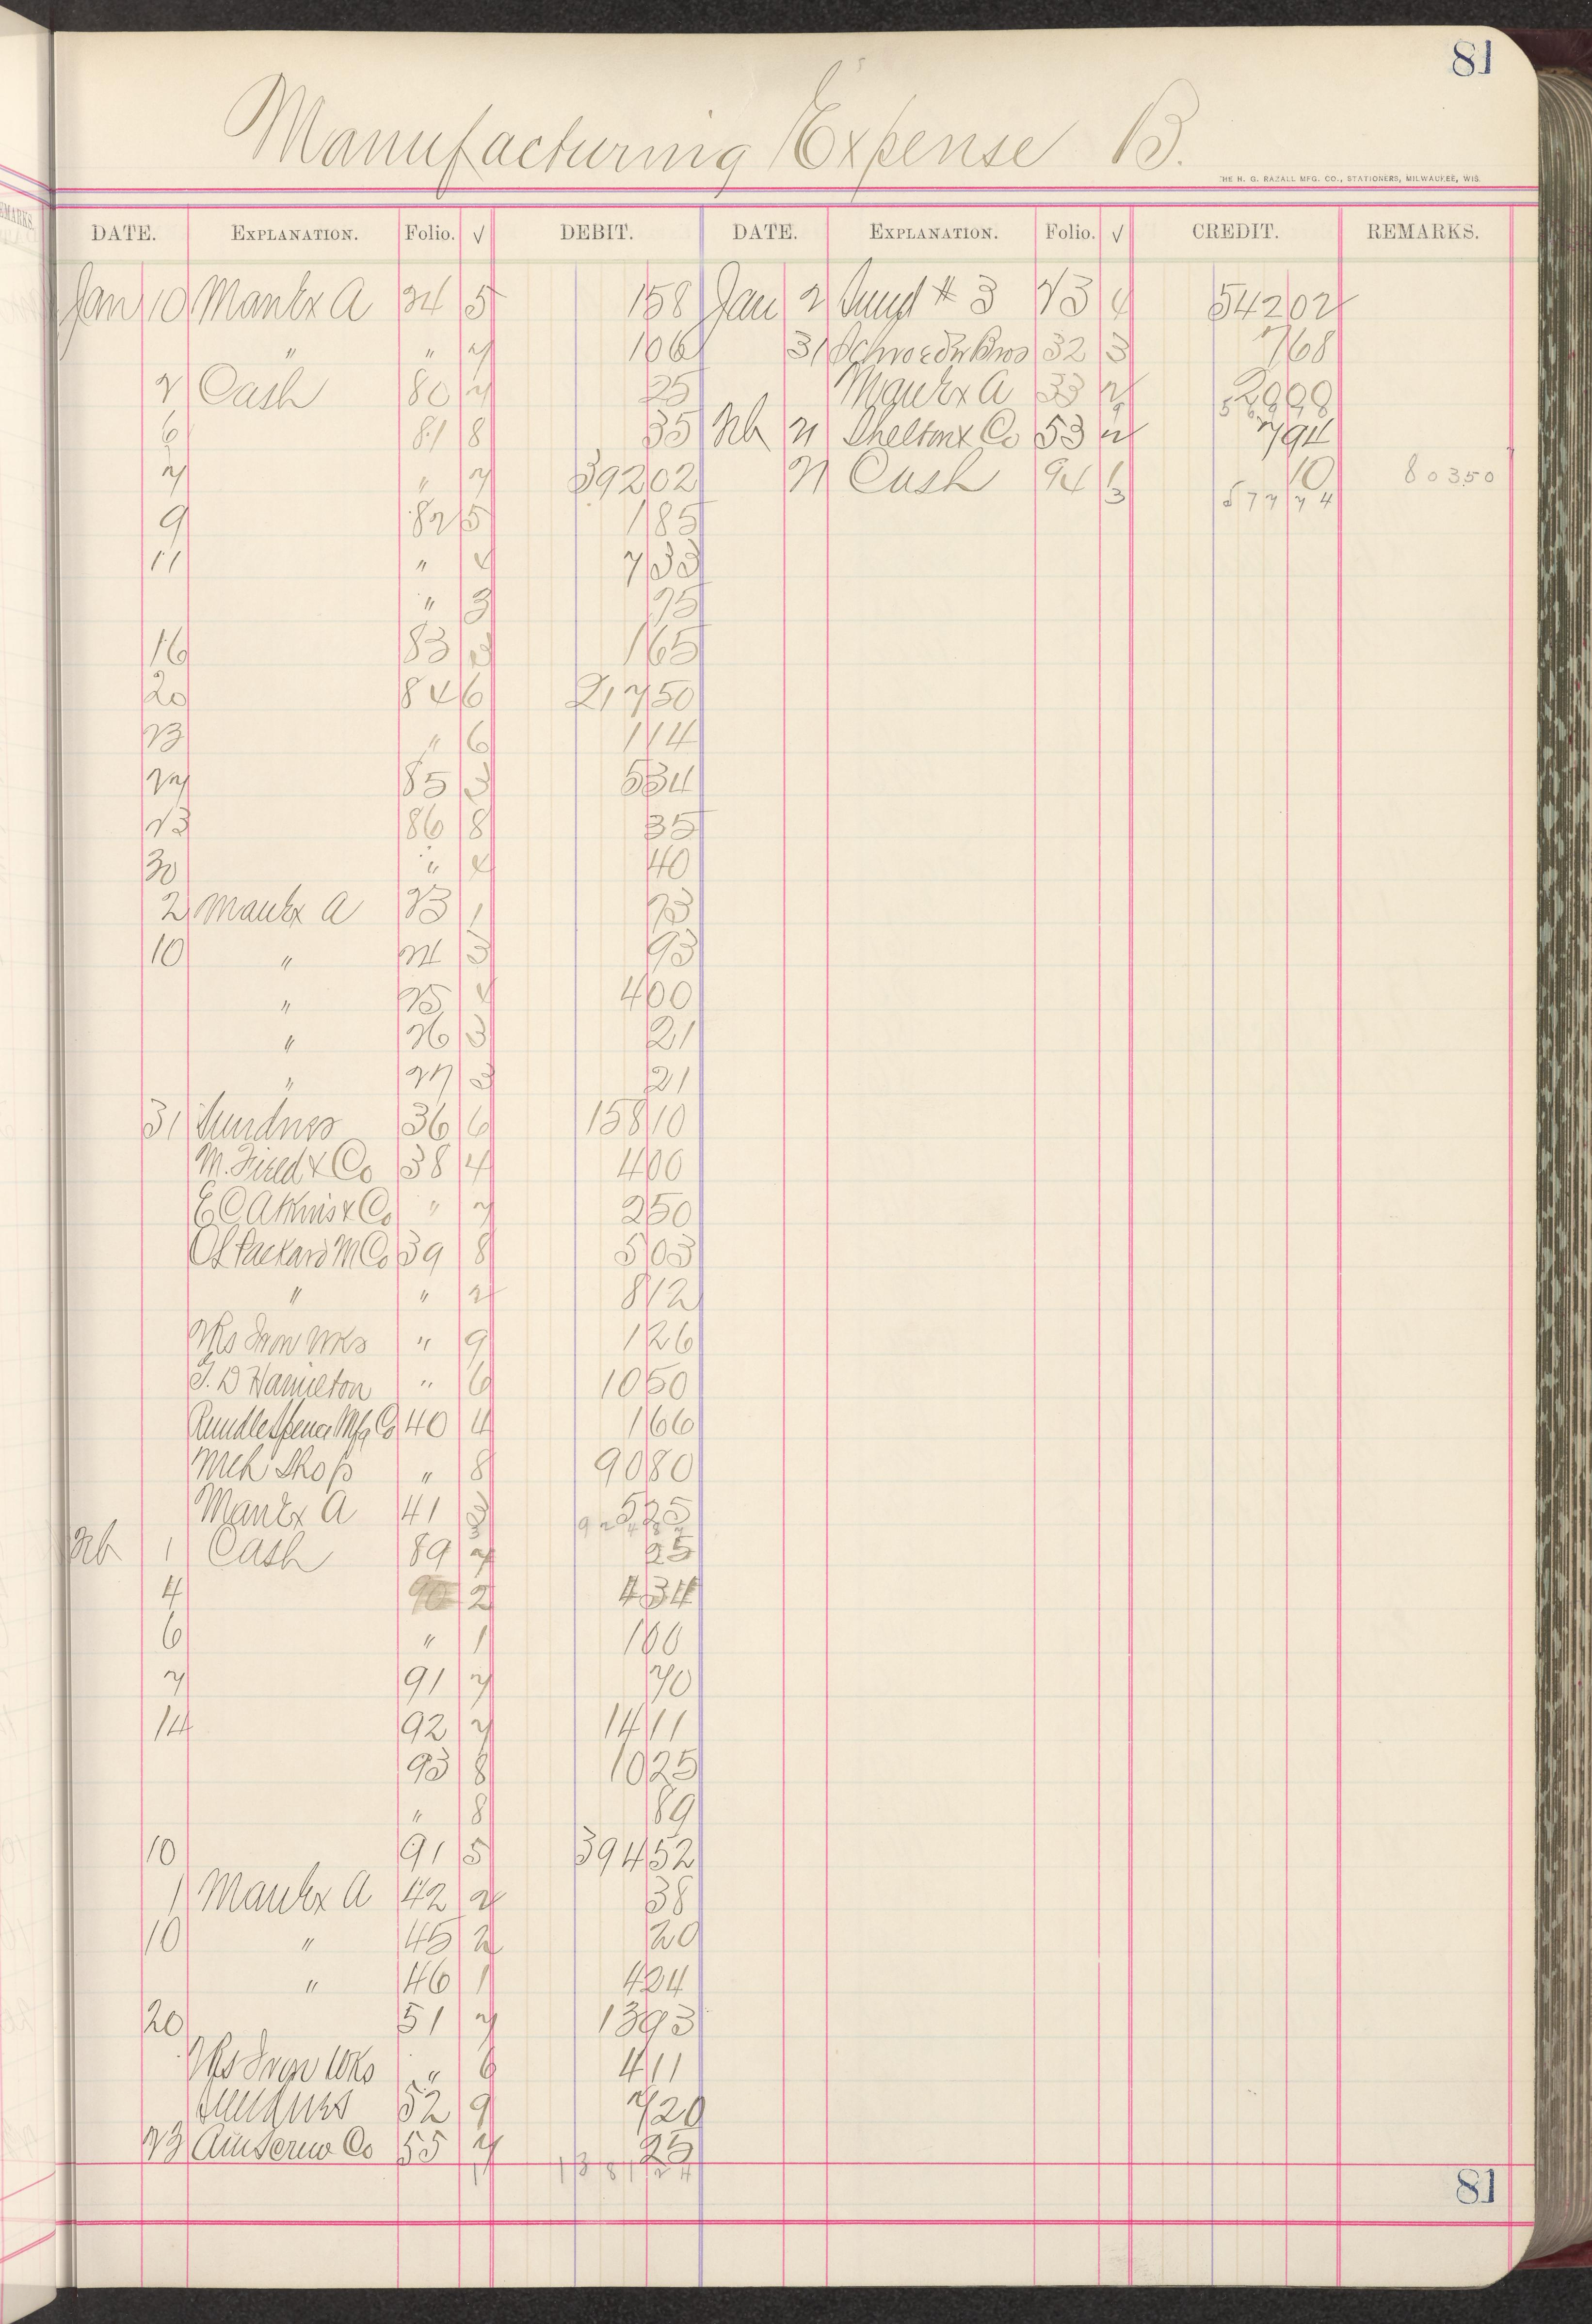 81
Manufacturing Expense B.
THE H. G. RAZALL MFG. CO., STATIONERS, MILWAUKEE, WIS.
DATE. EXPLANATION. Folio. √ DEBIT. DATE. EXPLANATION. Folio. √ CREDIT. REMARKS.
Jan 10 Manfx A 24 5 1 58 Jan 2 Sund # 3 23 4 542 02
" " 7 1 06 31 Schroeder Bros 32 3 7 68
2 Cash 80 7 25 Manfx A 33 2
6 81 8 35 Feb 21 Shelton & Co 53 2 7 94
7 " 7 392 02 21 Cash 94 1 10 803 50
3 577 74
9 82 5 1 85
11 " 4 7 33
" 3 75
16 83 3 1 65
20 84 6 217 50
23 " 6 1 14
27 85 3 5 34
23 86 8 35
30 " 4 40
2 Manfx A 23 1 73
10 " 24 3 93
" 25 4 4 00
" 26 3 21
" 27 3 21
31 Sundries 36 6 158 10
M. Field & Co 38 4 4 00
E C Atkins & Co " 7 2 50
O L Packard M Co 39 8 5 03
" " 2 8 12
Wks Iron Wks " 9 1 26
T. D Hamilton " 6 10 50
Rundle Spence Mfg Co 40 4 1 66
Mch Shop " 8 90 80
Manfx A 41 3 5 25
Feb 1 Cash 89 7 25
4 90 2 4 34
6 " 1 1 00
7 91 7 70
14 92 7 14 11
93 8 10 25
" 8 89
10 91 5 394 52
1 Manfx A 42 2 38
10 " 45 2 20
" 46 1 4 24
20 51 7 13 93
Wks Iron Wks " 6 4 11
Sundries 52 9 7 20
23 Am Screw Co 55 7 25
1381 24
81